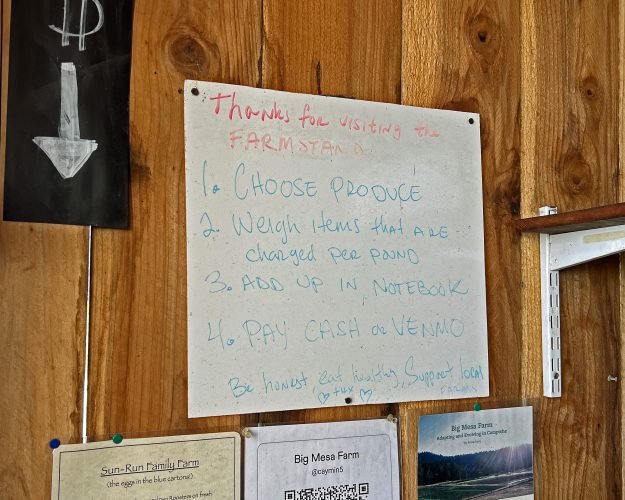 $
Thanks for visiting the
FARMSTAND
1. CHOOSE PRODUCE
2. Weigh items that ARE
charged per pound
3. ADD UP IN NOTEBOOK
4. PAY CASH or VENMO
Be honest eat healthy, Support local
thx FARMS
Sun-Run Family Farm
(the eggs in the blue cartons)
Big Mesa Farm
@caymin5
Big Mesa Farm
Adapting and Evolving in